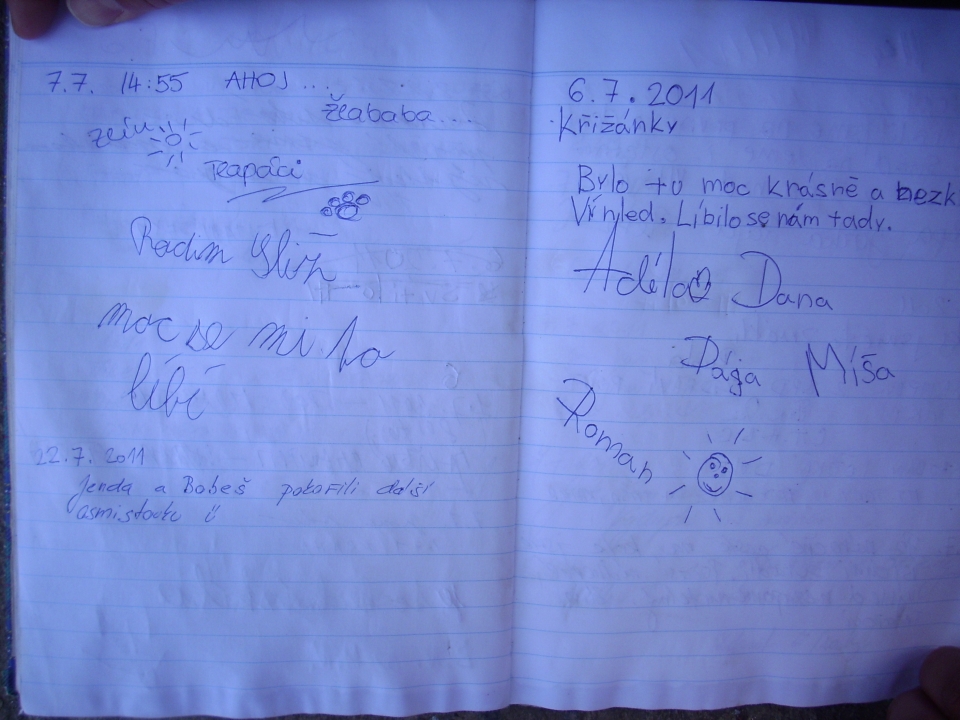 7.7. 14:55 AHOJ...
Žlababa...
Trapáci
Radim
moc se mi to
líbí
22.7. 2011
Jenda a Bobeš pokořili další
osmistovku ü
6.7.2011
Křižánky
Bylo tu moc krásně a hezk
Víhled. Líbilo se nám tady.
Adéla Dana
Dája Míša
Roman